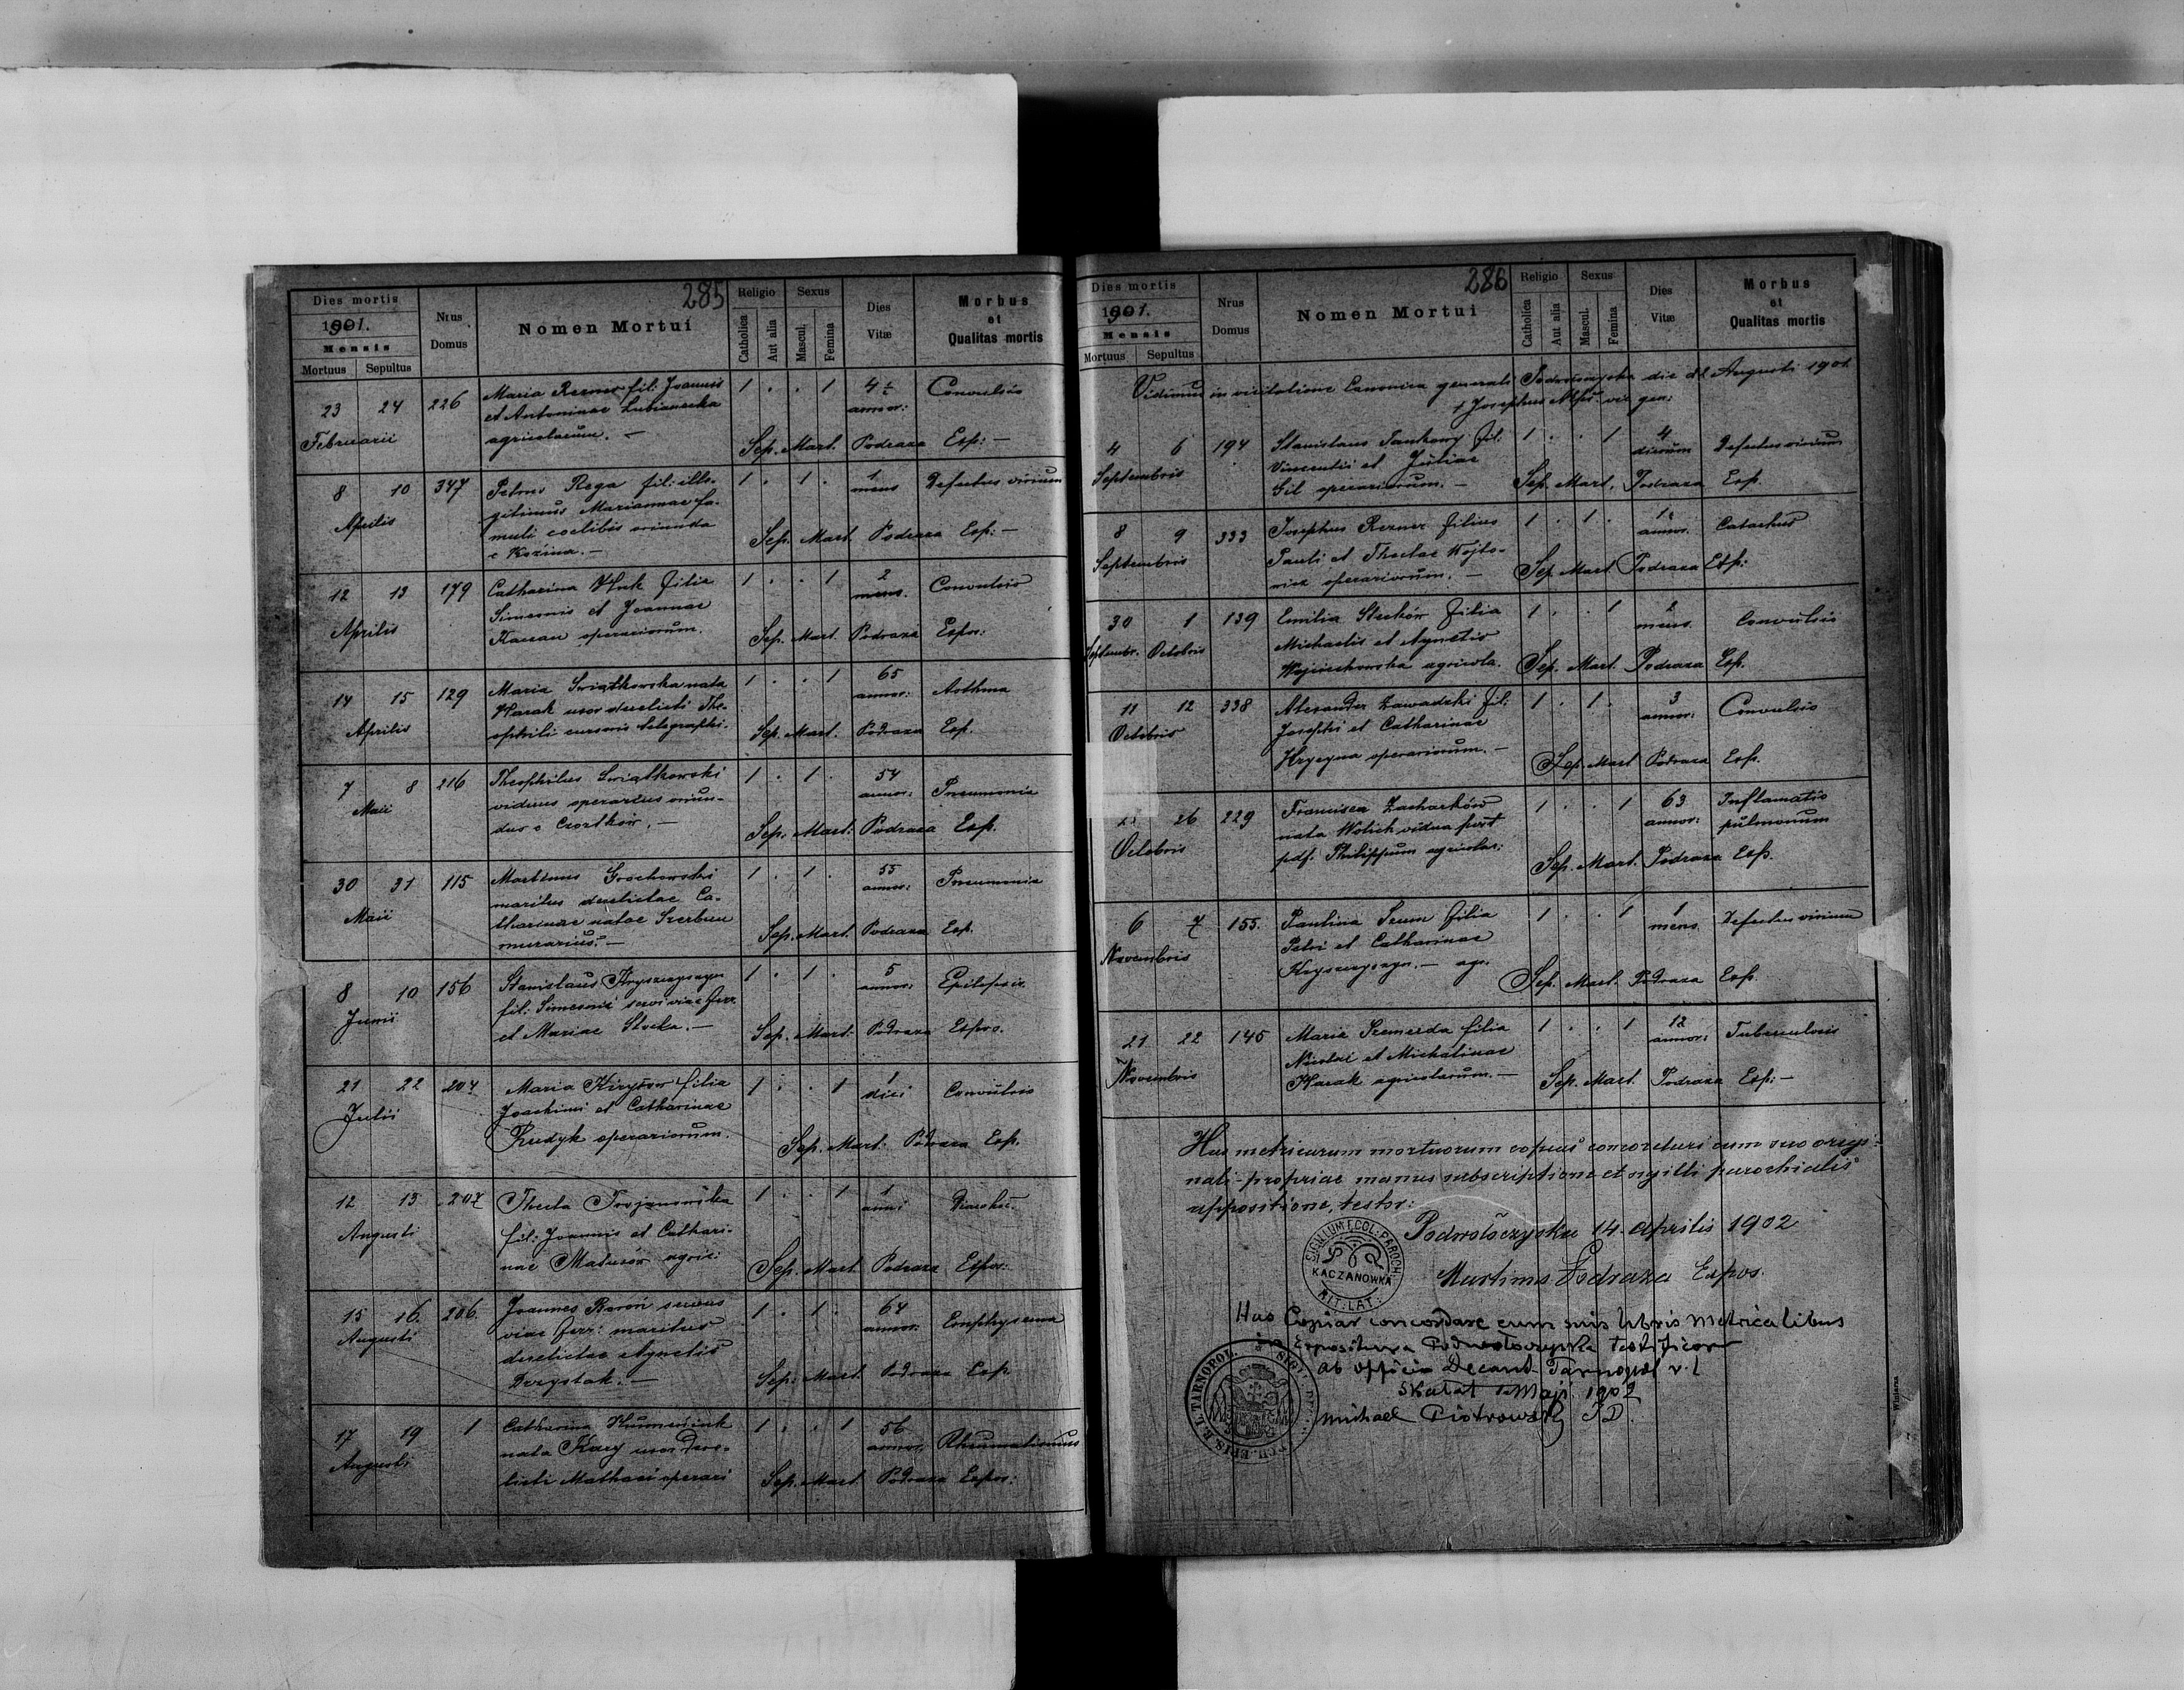 285
Dies mortis
1901.
Mensis
Mortuus Sepultus
Nrus Domus
Nomen Mortui
Religio
Catholica
Aut alia
Sexus
Mascul.
Femina
Dies Vitæ
Morbus et Qualitas mortis
23 24 226 Maria Rezner fil: Joannis 1 . . 1 4½ Convulsio
Februarii et Antoninae Lubianecka annor:
agricolarum. — Sep. Mart. Podraza Exp: —
8 10 347 Petrus Rega fil: ille- 1 . 1 . 1 Defectus virium
Aprilis gitimus Mariannae fa- mens
muli coelibis oriunda Sep. Mart. Podraza Exp: —
e Kozina. —
12 13 179 Catharina Huk filia 1 . . 1 2 Convulsio
Aprilis Simeonis et Joannae mens.
operariorum. Sep. Mart. Podraza Expos:
14 15 129 Maria Swiątkowska nata 1 . . 1 65 Asthma
Aprilis Harak uxor derelicti The- annor:
ophili cursoris telegraphi. Sep. Mart. Podraza Exp.
7 8 216 Theophilus Swiątkowski 1 . 1 . 54 Pneumonia
Maii viduus operarius oriun- annor:
dus e Czortków. — Sep. Mart. Podraza Exp.
30 31 115 Martinus Grochowski 1 . 1 . 55 Pneumonia
Maii maritus derelictae Ca- annor:
tharinae natae Szerbun Sep. Mart. Podraza Exp.
murarius. —
8 10 156 Stanislaus Kryszczyszyn 1 . 1 . 5 Epilepsia
Junii fil: Simeonis servi viae ferr. annor:
et Mariae Stocka. — Sep. Mart. Podraza Expos.
21 22 204 Maria Kiryków filia 1 . . 1 1 Convulsio
Julii Joachimi et Catharinae diei
Rudyk operariorum. Sep. Mart. Podraza Exp.
12 13 207 Thecla Trojanowska 1 . . 1 1
Augusti fil: Joannis et Cathari- anni
nae Matusów agric: Sep. Mart. Podraza Expos:
15 16. 206. Joannes Baron servus 1 . 1 . 64 Emphysema
Augusti viae ferr: maritus annor:
derelictae Agnetis
Drzystak. — Sep. Mart. Podraza Exp.
17 19 1 Catharina 1 . . 1 56 Rheumatismus
Augusti nata Kary uxor dere- annor:
licti Mathaei operari Sep. Mart. Podraza Expos:
286
Dies mortis
1901.
Mensis
Mortuus Sepultus
Nrus Domus
Nomen Mortui
Religio
Catholica
Aut alia
Sexus
Mascul.
Femina
Dies Vitæ
Morbus et Qualitas mortis
Vidimus in visitatione Canonica generali Podwołoczyska die Augusti 1901
† Josephus vic gen:
4 6 194 Stanislaus Jankowy fil. 1 . . 1 4 Defectus virium
Septembris Vincentii et Juliae dierum
Gil operariorum. — Sep. Mart. Podraza Exp.
8 9 333 Josephus Rezner filius 1 . 1 . Catarhus
Septembris Pauli et Theclae Wojto- annor.
wicz operariorum. — Sep. Mart. Podraza Exp:
30 1 139 Emilia Stecków filia 1 . . 1 2 Convulsio
Septembr. Octobris Michaelis et Agnetis mens.
Wojciechowska agricola. Sep. Mart. Podraza Exp.
11 12 338 Alexander Zawadzki fil: 1 . 1 . 3 Convulsio
Octobris Josephi et Catharinae annor:
Hrycyna operariorum. — Sep. Mart Podraza Exp.
26 229 Francisca Zacharków 1 . . 1 63 Inflamatio
Octobris nata Wolich vidua post annor: pulmonum
pdf. Philippum agricolae: Sep. Mart. Podraza Exp.
6 7 155. Paulina Szum filia 1 . . 1 1 Defectus virium
Novembris Petri et Catharinae mens
Kryszczyszyn. — agr. Sep. Mart. Podraza Exp.
21 22 145 Maria Szmerda filia 1 . . 1 12 Tuberculosis
Novembris Nicolai et Michalinae annor:
Harak agricolarum. — Sep. Mart. Podraza Exp: —
Has metricarum mortuorum copias concordari cum suo origi-
nali - propriae manus subscriptione et sigilli parochialis
appositione, testor:
Podwołoczyska 14. Aprilis 1902
Martinus Podraza Expos.
SIGILLUM ECCL. PAROCH.
KACZANOWKA
RIT. LAT.
Has Copias concordare cum suis libris metricalibus
in Expositura Podwołoczyska testificor
Ab officio Decanl. Tarnopol r. l
Skałat Maji 1902
Michael Piotrowski
TARNOPOL.
Winiarza